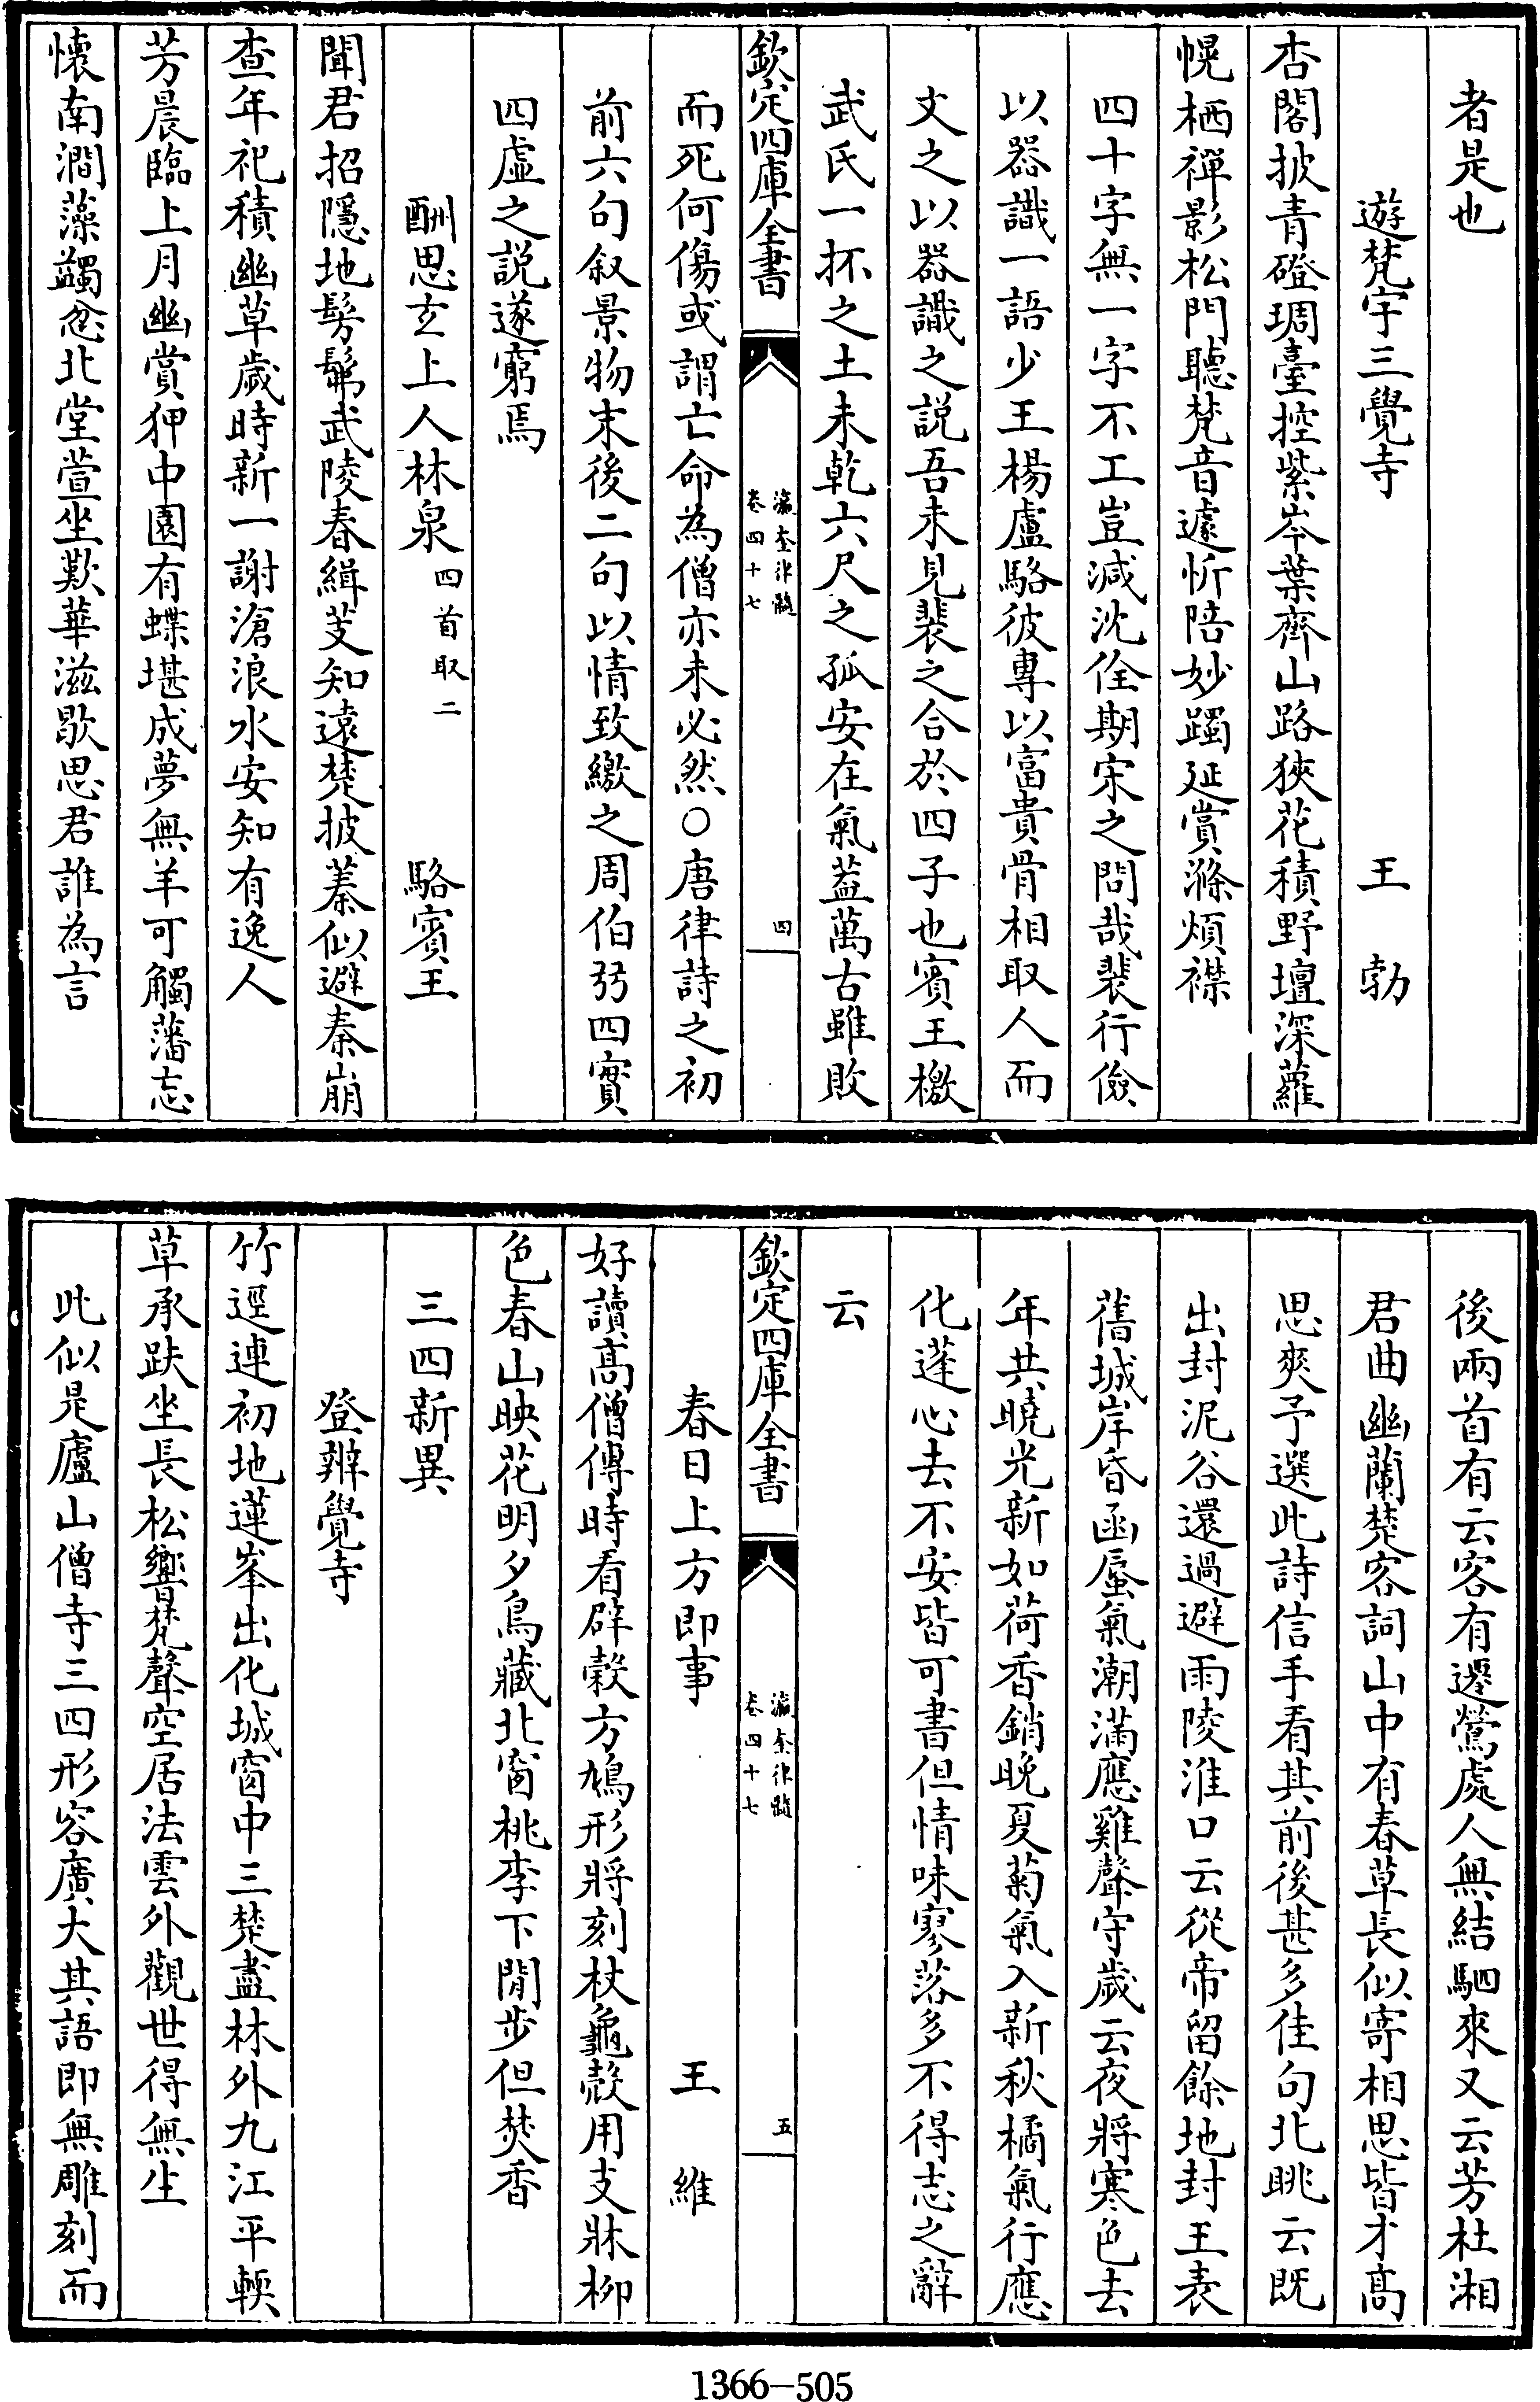 者是也
遊梵宇三覺寺　王勃
杏閣披青磴琱臺控紫岑葉齊山路狹花積野壇深蘿
幌栖禪影松門聽梵音遽忻陪妙躅延賞滌煩襟
四十字無一字不工豈減沈佺期宋之問哉裴行儉
以器識一語少王楊盧駱彼專以富貴骨相取人而
文之以器識之説吾未見裴之合於四子也賓王檄
武氏一抔之土未乾六尺之孤安在氣葢萬古雖敗
欽定四庫全書
瀛奎律髓
卷四十七
四
而死何傷或謂亡命為僧亦未必然○唐律詩之初
前六句叙景物末後二句以情致繳之周伯弜四實
四虛之説遂窮焉
酬思玄上人林泉四首取二　駱賓王
聞君招隱地髣髴武陵春緝芰知還楚披蓁似避秦崩
查年祀積幽草歲時新一謝滄浪水安知有逸人
芳晨臨上月幽賞狎中園有蝶堪成夢無羊可觸藩忘
懷南澗藻蠲忿北堂萱坐歎華滋歇思君誰為言
後兩首有云客有遷鶯處人無結駟來又云芳杜湘
君曲幽蘭楚客詞山中有春草長似寄相思皆才髙
思爽予選此詩信手看其前後甚多佳句北眺云既
出封泥谷還過避雨陵淮口云從帝留餘地封王表
舊城岸昏函蜃氣潮滿應雞聲守歲云夜將寒色去
年共曉光新如荷香銷晚夏菊氣入新秋橘氣行應
化蓬心去不安皆可書但情味寥落多不得志之辭
云
欽定四庫全書
瀛奎律髓
卷四十七
五
春日上方即事　王維
好讀髙僧傳時看辟榖方鳩形將刻杖龜殻用支牀柳
色春山映花明夕鳥藏北窗桃李下閒步但焚香
三四新異
登辨覺寺
竹逕連初地蓮峯出化城窗中三楚盡林外九江平輭
草承趺坐長松響梵聲空居法雲外觀世得無生
此似是廬山僧寺三四形容廣大其語即無雕刻而
1366-505